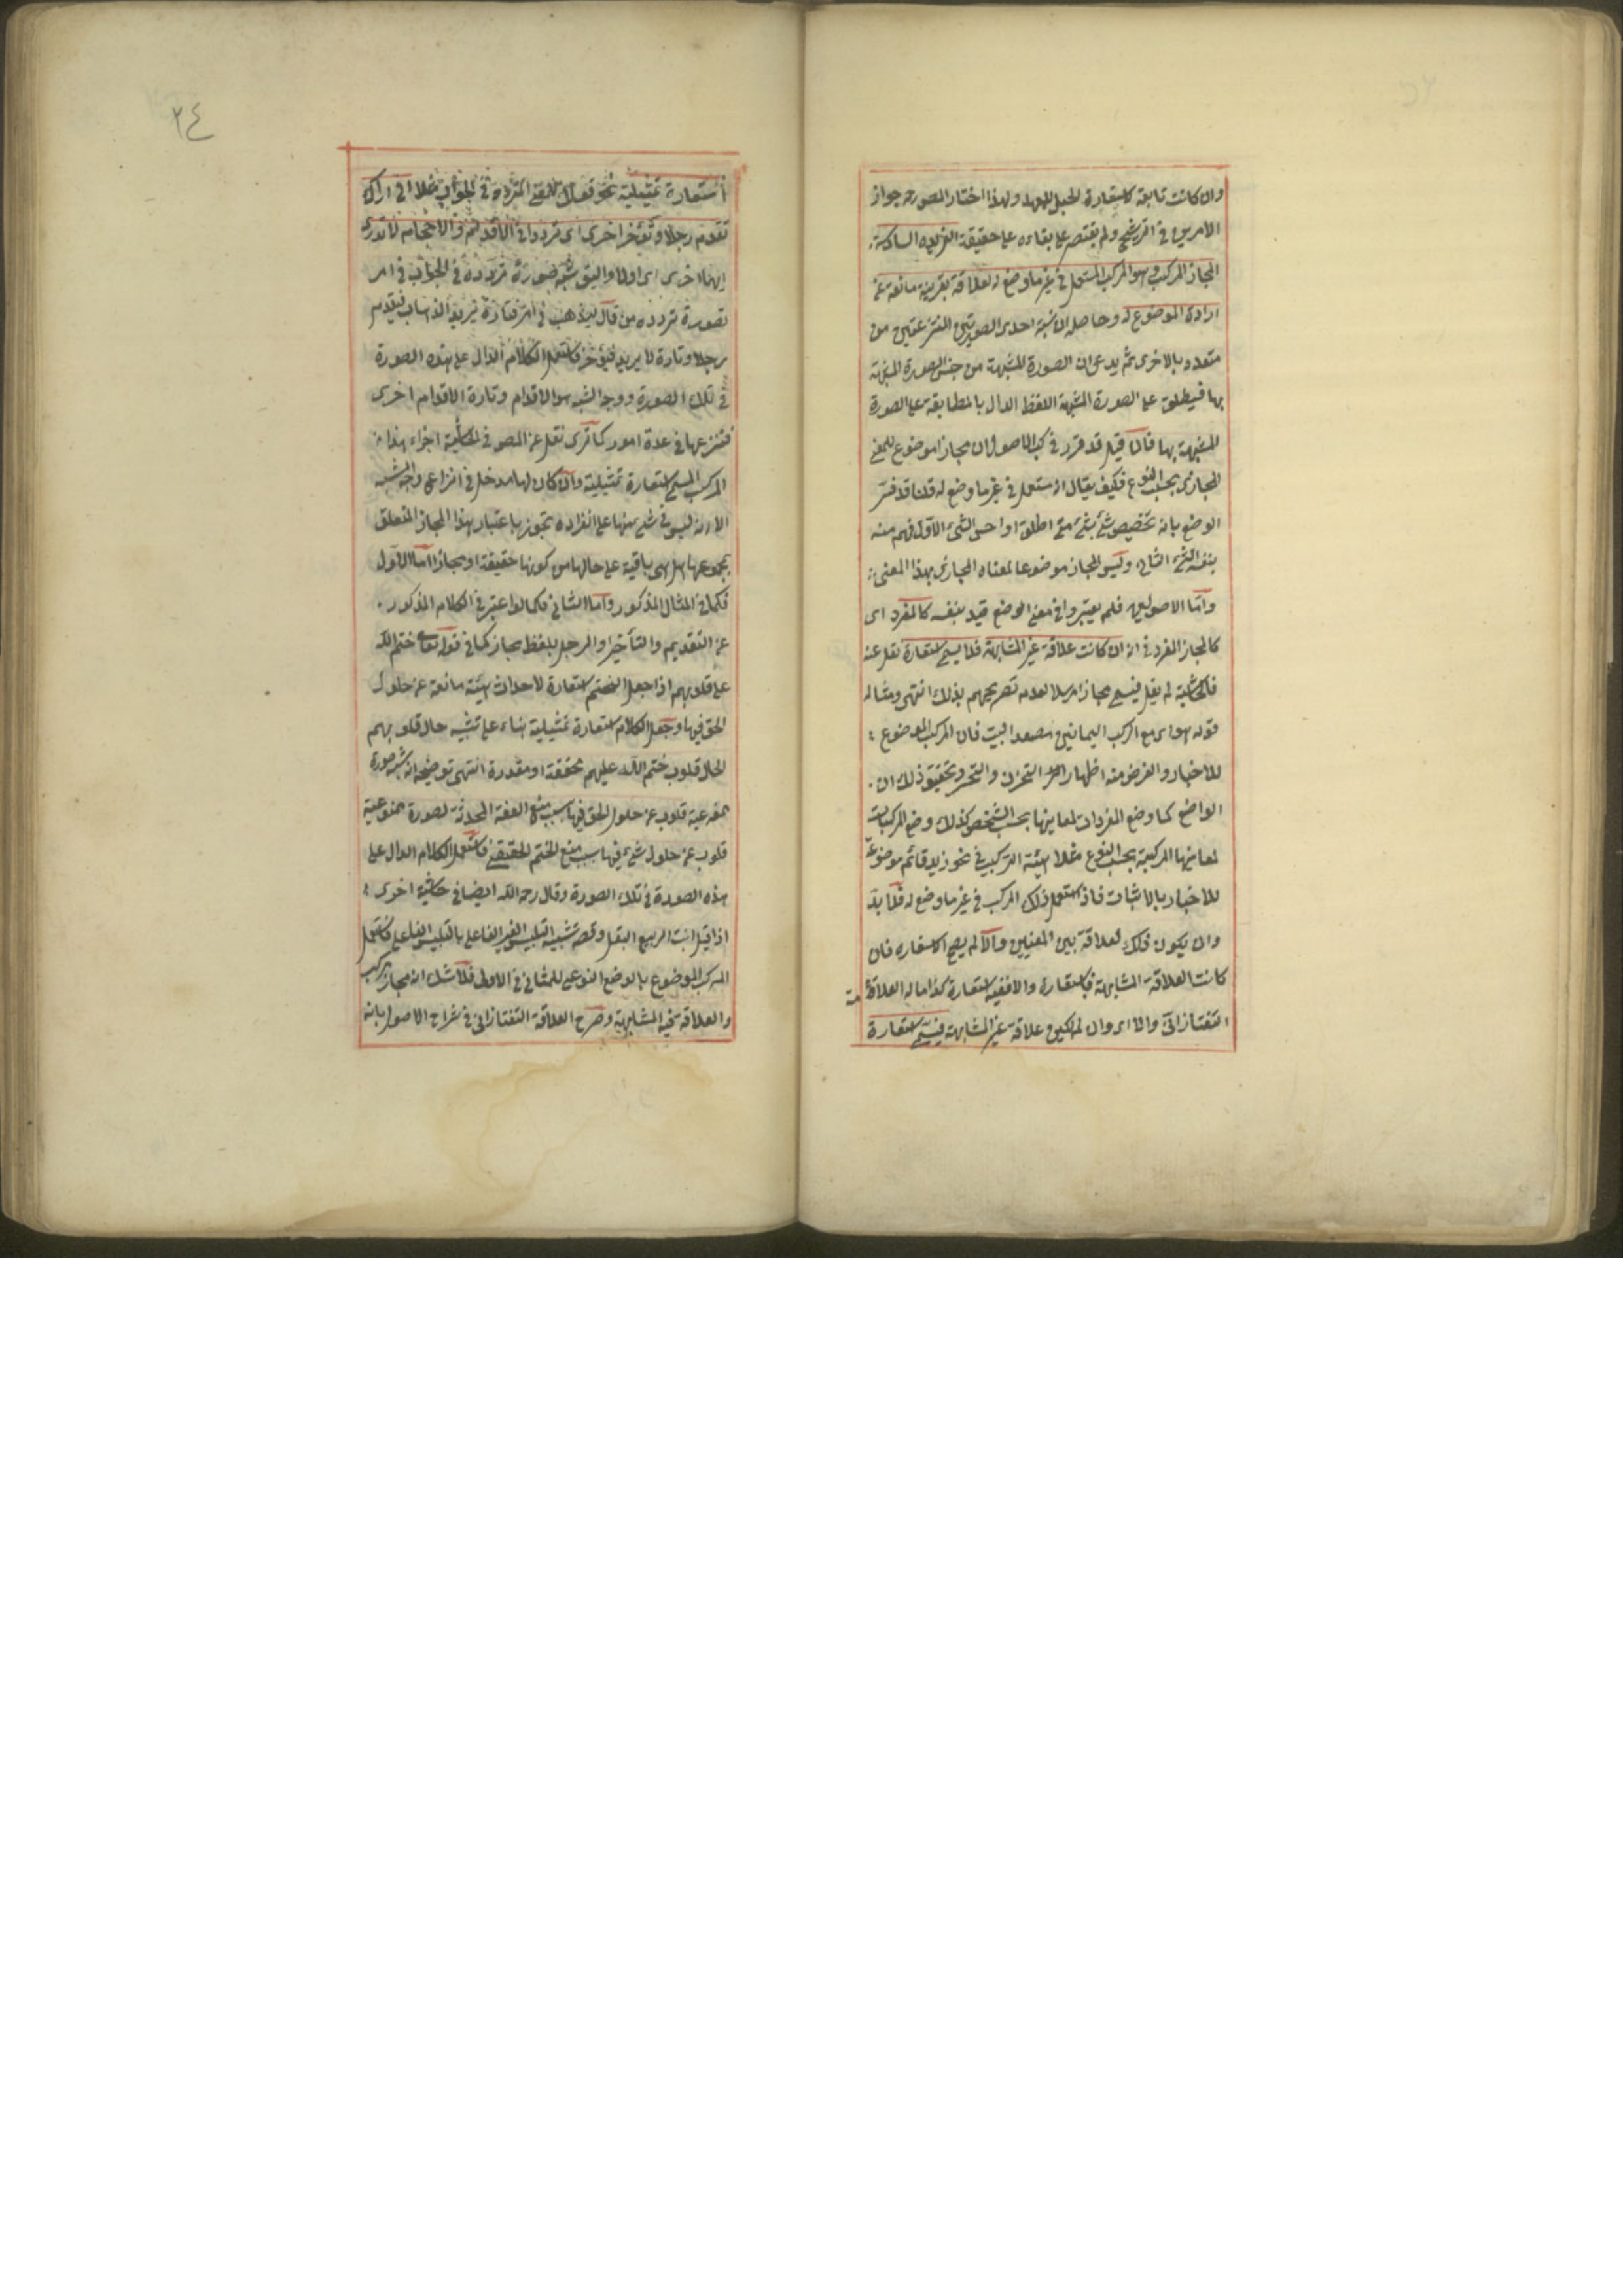 وان كانت تابعة كاستعارة الحبل للعهد ولهذا اختار المصورح جواز
الامرين في الترشيح ولم يقتصر على بقاءه على حقيقته الفريده السادسة
المجاز المركب وهو المركب المستعمل في غير ما وضع له لعلاقة بقرينة مانعة عن
ارادة الموضوع له وحاصله ان يشبه احدى الصورتين المنتزعتين من
متعدد بالاخرى ثم يدعى ان الصورة المشبهة من جنس الصورة المشبهة
بها فيطلق على الصورة المشبهة اللفظ الدال بالمطابقة على الصورة
المشبهة بها فان قيل قد قرر في كتب الاصول ان مجازا موضوع للمعنى
المجازى بحسب النوع فكيف يقال انه مستعمل في غير ما وضع له قلنا قد فسر
الوضع بانه تخصيص شئ بشئ متى اطلق او احس الشئ الاول فهم منه
بنفسه الشئ الثانى وليس المجاز موضوعا لمعناه المجازى بهذا المعنى
واما الاصوليون فلم يعتبروا في معنى الوضع قيد بنفسه كالمفرد اى
كالمجاز المفرد في انه ان كانت علاقة غير المشابهة فلا يسمى استعارة نقل عنه
في الحاشية لم يقل فيسمى مجازا مرسلا لعدم تصريحهم بذلك انتهى ومثاله
قوله هواى مع الركب اليمانين مصعد البيت فان المركب الموضوع
للاخبار والغرض منه اظهار التحزن والتحسر وتحقيق ذلك ان
الواضع كما وضع المفردات لمعانيها بحسب الشخص كذلك وضع المركبات
لمعانيها المركبية بحسب النوع مثلا هيئة التركيب في نحو زيد قائم موضوعة
للاخبار بالاثبات فاذا استعمل ذلك المركب في غير ما وضع له فلا بد
وان يكون ذلك لعلاقة بين المعنيين والا لم يصح الاستعاره فان
كانت العلاقة المشابهة فاستعارة والا فغير استعارة كذا ماله العلامة
التفتازانى والا اى وان لم يكن علاقة غير المشابهة فيسمى استعارة
٢٤
استعارة تمثيلية نحو قولك للمفتى المتردد في الجواب مثلا انى اراك
تقدم رجلا وتؤخر اخرى اى تردد في الاقدام والاحجام لا تدرى
ايهما احرى اى اولى واليق شبه صورة تردده في الجواب في امر
بصورة تردده من قال ليذهب في امر فتارة يريد الذهاب فيقدم
رجلا وتارة لا يريد فيؤخر فاستعمل الكلام الدال على هذه الصورة
في تلك الصورة ووجه الشبه هو الاقدام وتارة الاقدام اخرى
منتزعها في عدة امور كما ترى نقل عن المصر في الحاشية اجزاء هذا
المركب المسمى استعارة تمثيلية وان كان لها مدخل في انتزاع وجه الشبه
الا انه ليس في شئ منها على انفراده تجوز باعتبار هذا المجاز المتعلق
بمجموعها بل هى باقية على حالها من كونها حقيقة او مجازا اما الاول
فكما في المثال المذكور واما الثانى فكما لو اعتبر في الكلام المذكور
عن التقديم والتأخير او الرجل بلفظ مجاز كما في قوله تعالى ختم الله
على قلوبهم اذا جعل الختم استعارة لاحداث هيئة مانعة عن حلول
الحق فيها وجعل الكلام استعارة تمثيلية بناء على تشبيه حال قلوبهم
الحال قلوب ختم الله عليهم محققة او مقدرة انتهى توضيحه انه شبه صورة
ممنوعية قلوب عن حلول الحق فيها بسبب منع الصفة المحدثة لصورة ممنوعية
قلوب عن حلول شئ فيها بسبب منع الختم الحقيقى فاستعمل الكلام الدال على
هذه الصورة في تلك الصورة وقال رحمه الله ايضا في حاشية اخرى
اذا قيل انبت الربيع البقل وقصد تشبيه التلبس الغير الفاعلى بالتلبس الفاعلى فاستعمل
المركب الموضوع بالوضع النوعى للمثانى في الاول فلا شك انه مجاز مركب
والعلاقة فيه المشابهة وصرح العلامة التفتازانى في شراح الاصول بانه